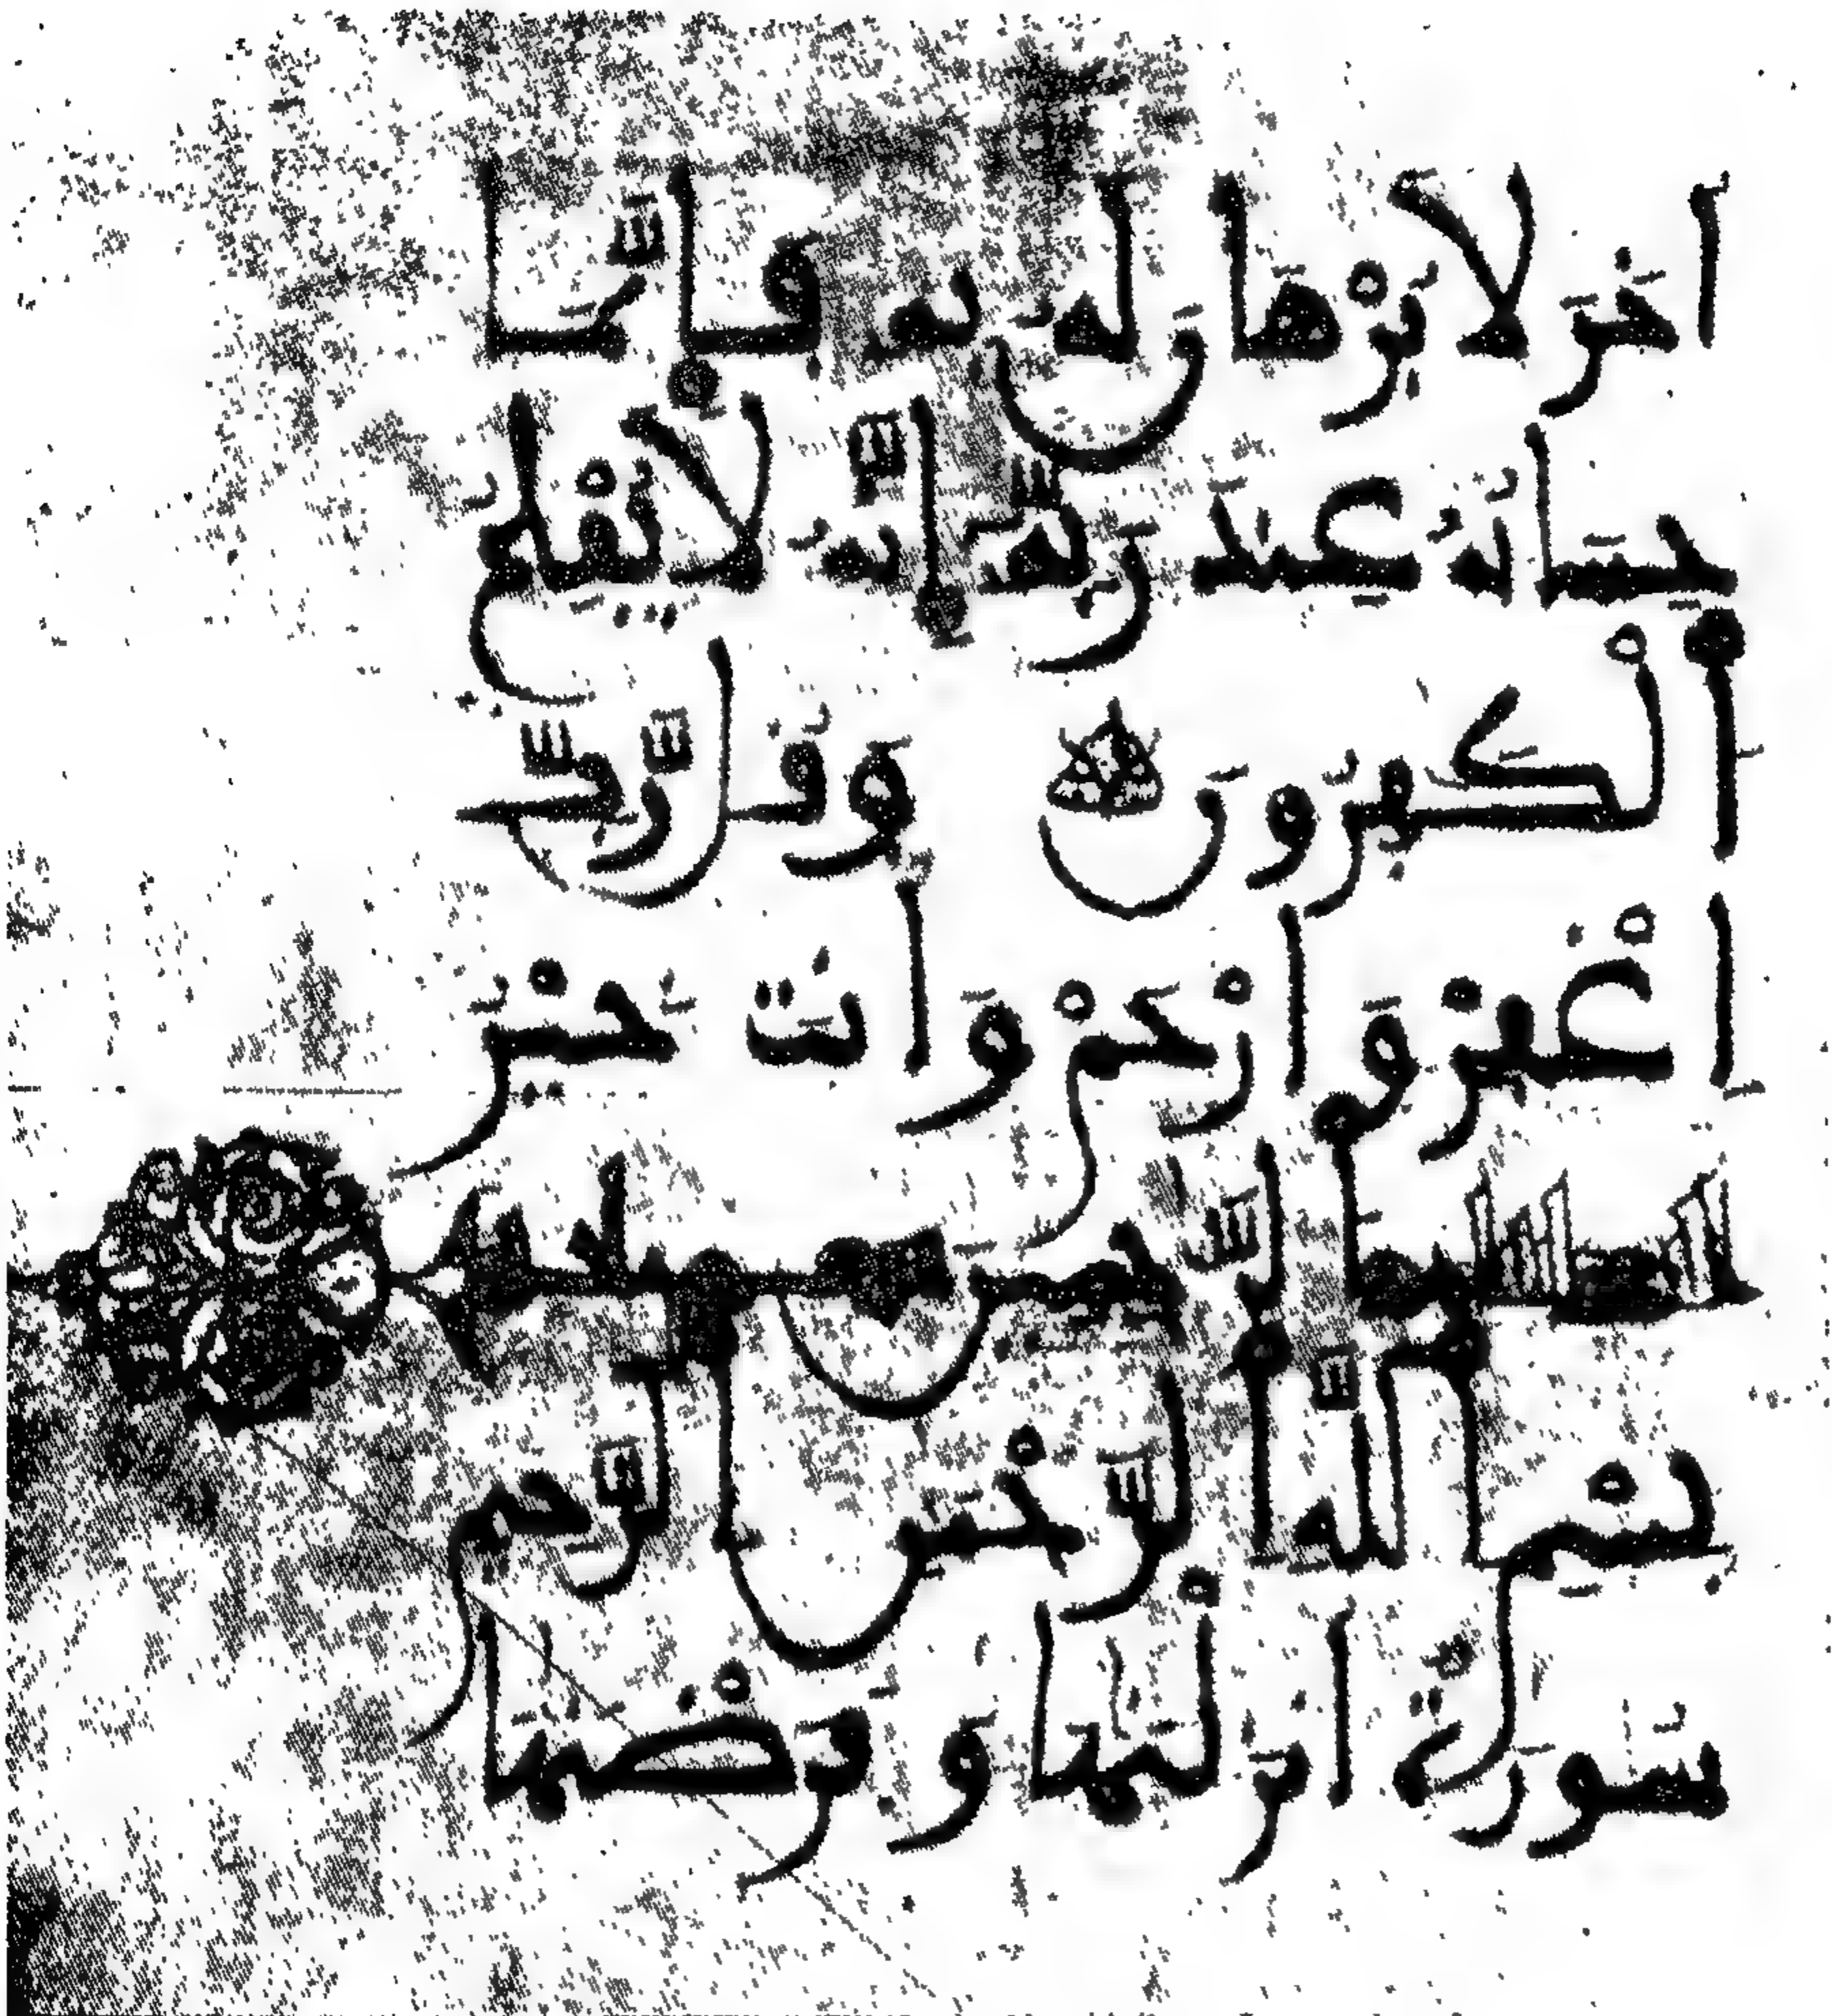 اخَرَ لَا بُرْهَانَ لَهُ بِهِ فَإِنَّمَا
حِسَابُهُ عِندَ رَبِّهِ إِنَّهُ لَا يُفْلِحُ
الْكٰفِرُونَ وَقُل رَّبِّ
اغْفِرْ وَارْحَمْ وَأَنتَ خَيْرُ
الرَّٰحِمِينَ
بِسْمِ اللَّهِ الرَّحْمَٰنِ الرَّحِيمِ
سُورَةٌ أَنزَلْنَٰهَا وَفَرَضْنَٰهَا